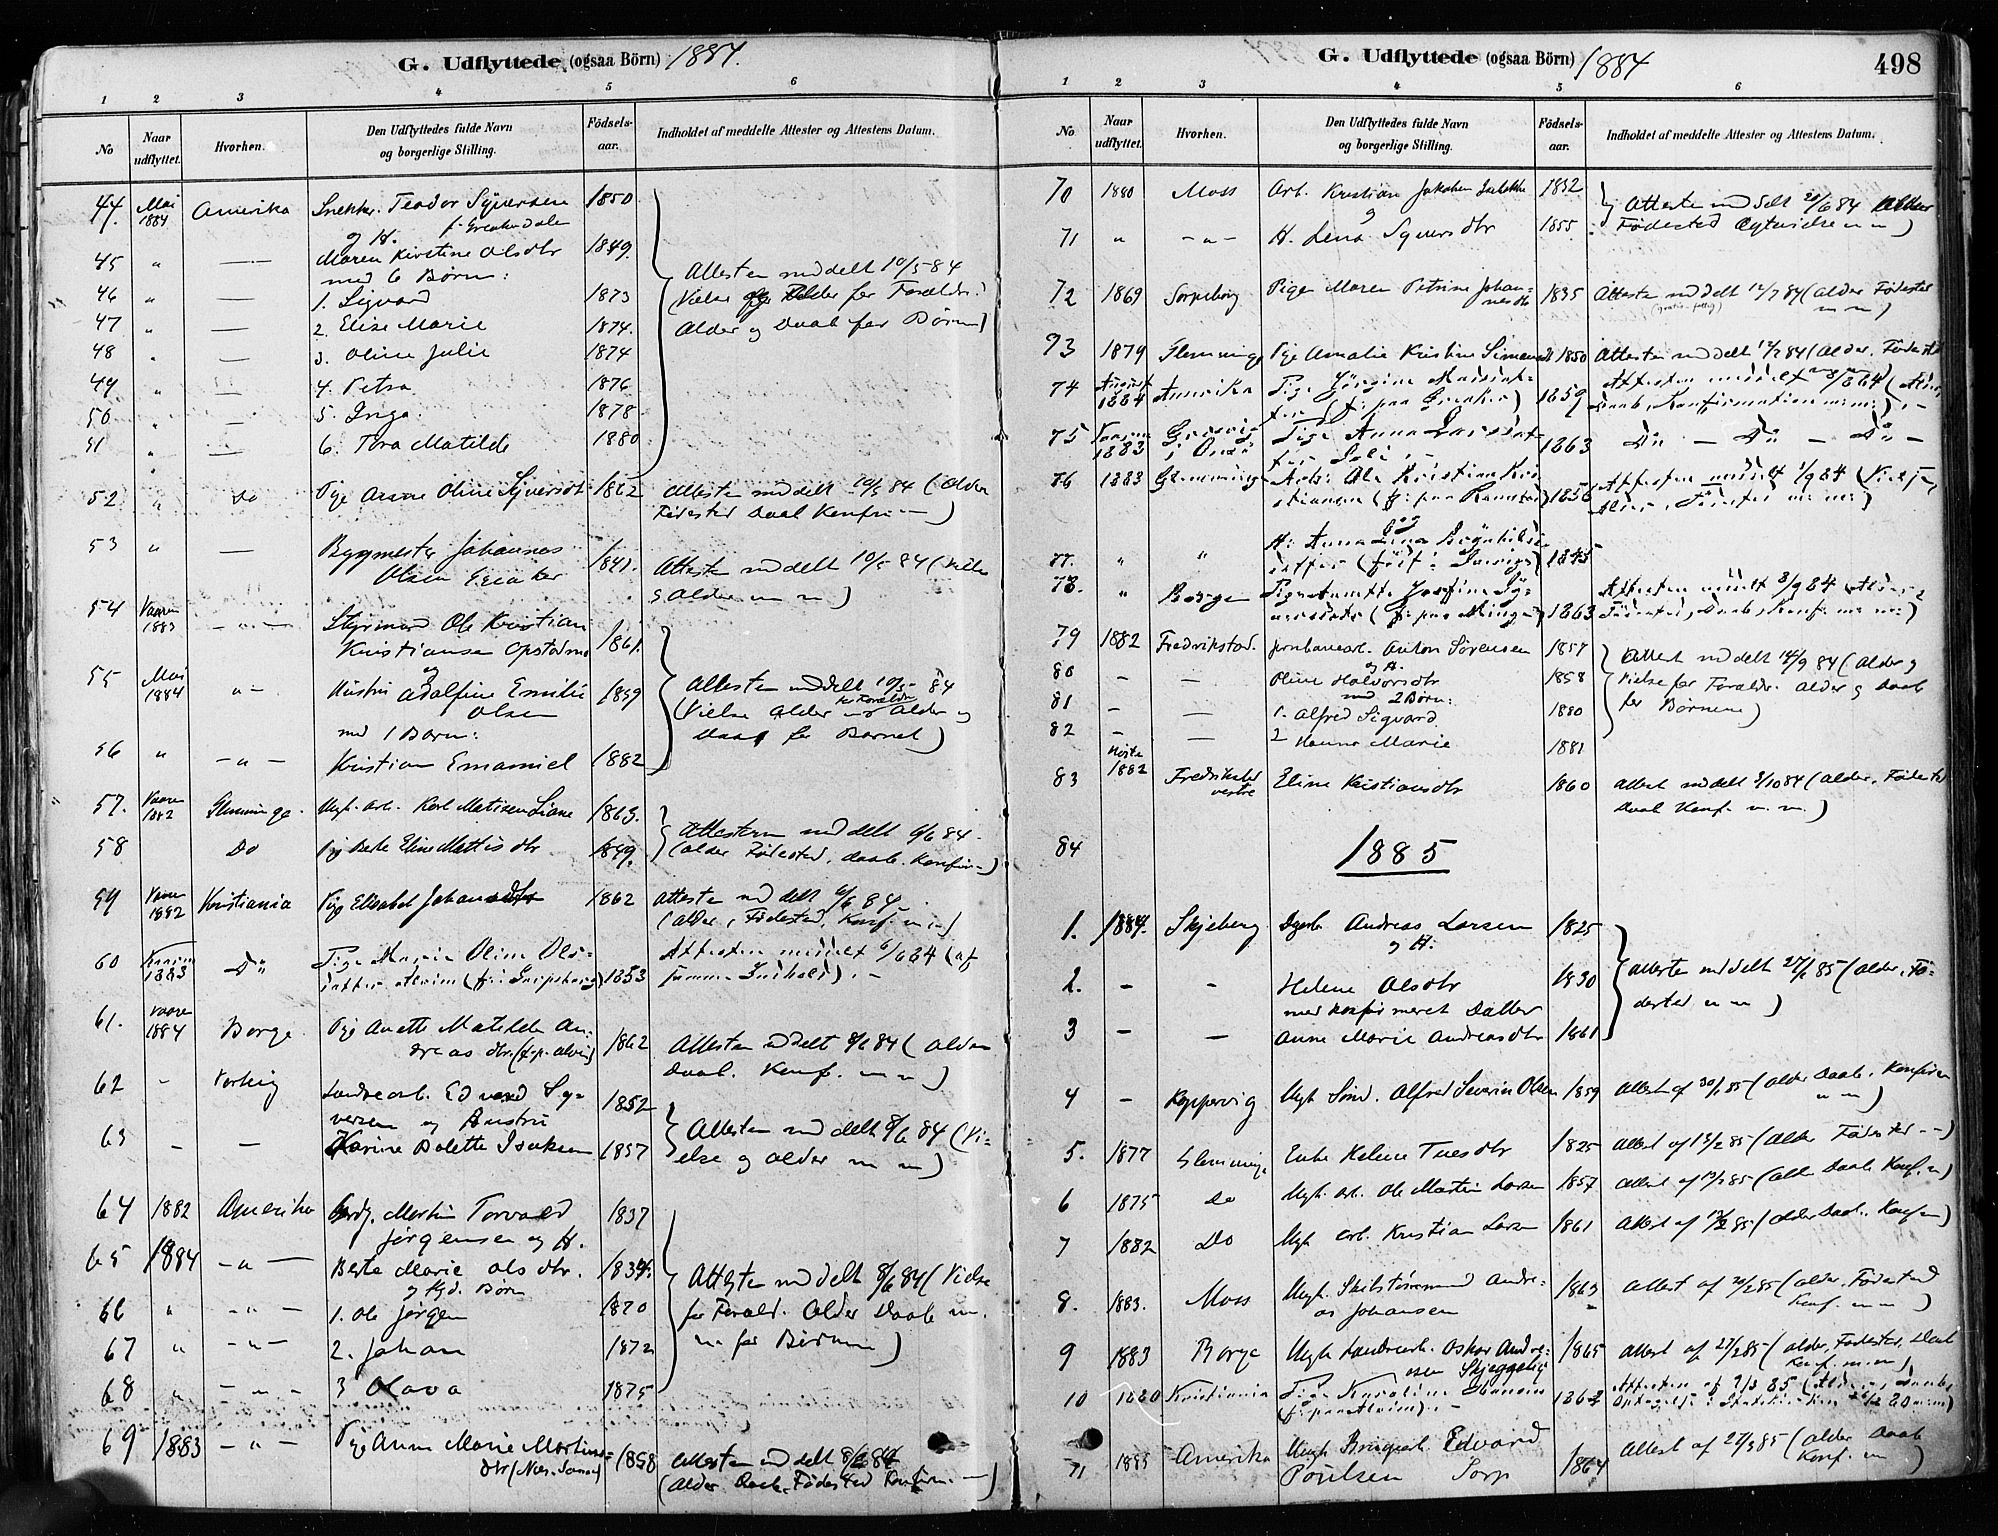 G. Udflyttede (ogsaa Börn) 1884.
1 2 3 4 5 6
No
Naar udflyttet.
Hvorhen.
Den Udflyttedes fulde Navn og borgerlige Stilling.
Födsels-aar.
Indholdet af meddelte Attester og Attestens Datum.
44. Mai 1884 Amerika Snekker Teodor Syversen 1850
og H.
45 " — Maren Kirstine Olsdtr 1849.
med 6 Børn:
Attesten meddelt 10/5 84
46 " — 1. Sigvard 1873
(Vielse og Alder for Forældre.
47 " — 2. Elise Marie 1874.
Alder og Daab for Børn)
48 " — 3. Oline Julie 1874
49 " — 4. Petra 1876
50 " — 5. Inga 1878
51 " — 6. Tora Matilde 1880
52 " Do Pige Anne Oline Syversdtr 1862 Attesten meddelt 10/5 84 (Alder
Fødested Daab Konfir —)
53 " — Bygmester Johannes
Olsen Greaker 1841. Attesten meddelt 10/5 84 (Vielse
og Alder m m)
54 Vaaren 1883 — " — Styrmand Ole Kristian
Kristiansen Opstad 1861.
og
55 Mai 1884 " — Hustru Adolfine Emilie
Olsen 1859
Attesten meddelt 10/5 84
(Vielse Alder for Forældre Alder og
med 1 Barn:
Daab for Barnet)
56 " — " — Kristian Emanuel 1882
57. Vaaren 1882 Glemminge Ungk. arb. Karl Matisen Liane 1863.
Attesterne meddelt 6/6 84
58 Do Pige Berte Eline Mattisdtr 1859.
(Alder Fødested, Daab. Konfir —)
59 Vaaren 1882 Kristiania Pige Elisabet Johansdtr 1862 Attesten meddelt 6/6 84
(Alder, Fødested, Konf. —)
60 Vaaren 1883 Do Pige Marie Oline Ols-
datter Alvim 1853 Attesten meddelt 6/6 84 (af
samme Indhold). —
61. Vaaren 1884 Borge Pige Anette Matilde An-
dreasdtr. (f. p. Alvim) 1862 Attesten meddelt 8/6 84 (Alder
Daab. Konf. m m)
62 — Varteig Landearb. Edvard Sy-
versen og Hustru 1852
63 — — Karine Bolette Isaksen 1857
Attesten meddelt 8/6 84 (Vi-
else og Alder m m)
64 1882 Amerika Martin Torvald 1837
Jørgensen og H.
65 1884 — " — Berte Marie Olsdtr.
og Børn
Attesten meddelt 8/6 84 (Vielse
66 " — " — 1. Ole Jørgen 1870
for Foræld. Alder Daab m.
67 " — " — 2. Johan 1872
m for Børnene)
68 " — " — 3 Olava 1875
69 1883 — " — Pige Anne Marie Martins-
dtr 1858 Attesten meddelt 8/6 84
(Alder Daab. Fødested Konfirm. —)
G. Udflyttede (ogsaa Börn) 1884
498
1 2 3 4 5 6
No
Naar udflyttet.
Hvorhen.
Den Udflyttedes fulde Navn og borgerlige Stilling.
Födsels-aar.
Indholdet af meddelte Attester og Attestens Datum.
70 1880 Moss Arb. Kristian Jakobsen 1832
og
Attesten meddelt 20/6 84 Alder
71 " — " — H. Lena Syversdtr 1855
Fødested Ægtevielse m m)
72 1869 Sarpsborg Pige Maren Petrine Johan-
nesdtr 1835 Attesten meddelt 12/7 84 (Alder Fødested
m m)
73 1879 Glemminge Pige Amalie Kristine 1850 Attesten meddelt 12/7 84 (Alder, Fødested
74 August 1884 Amerika Pige Jørgine Mathisdat-
ter (f: paa Greaker) 1859 Attesten meddelt 23/8 84 (Alder,
Daab, Konfirmation m: m:). —
75 Vaaren 1883 i Onsø Pige Anna Larsdat-
ter 1863 Do — Do — Do —
76 1883 Glemminge Arb: Ole Kristian Kri-
stiansen 1856 Attesten meddelt 1/9 84 (Vielse,
Alder, Fødested m: m:)
og
77. " " H: Anna Lena
datter (født i Sverige) 1845
78. " Borge Pige Anette Josefine Sy-
versdatter 1863 Attesten meddelt 8/9 84 (Alder,
Fødested, Daab, Konf: m: m:)
79 1882 Fredrikstad. Jernbanearb. Anton Sørensen 1857
og H.
Attest meddelt 14/9 84 (Alder og
80 — — Oline Halvorsdtr 1858
med 2 Børn:
Vielse for Forældr. Alder og Daab
81 — — 1. Alfred Sigvard 1880
for Børnene)
82 — — 2 Hanna Marie 1881
83 Høsten 1882 Fredrikstad vestre Eline Kristiansdtr 1860 Attest meddelt 3/10 84 (Alder, Fødested
Daab Konf. m. m.)
84
1885
1. 1884. Skjeberg Andreas Larsen 1825
og H:
2. — — Helene Olsdtr 1830
Attesten meddelt 27/1 85 (Alder, Fø-
med konfirmeret Datter
desteded m m)
3 — — Anne Marie Andreasdtr 1861
4 — Koppervig Ungk Sømd. Alfred Severin Olsen 1859 Attest af 30/1 85 (Alder Daab. Konfirm
m m)
5. 1877 Glemminge Enke Helene 1825 Attest af 13/2 85 (Alder Fødested —)
6 1875 Do Ungk. arb. Ole Martin Larsen 1857 Attest af 13/2 85 (Alder Daab. Konf. m)
7 1882 Do Ungk. arb. Kristian Larsen 1861 Attest af 13/2 85 (Alder Daab. Konf m)
8. 1883. Moss Ungk. Andre-
as Johansen 1863 Attest af 20/2 85 (Alder, Fødested
Konf. m m)
9 1883 Borge Ungk Landearb. Oskar Andre-
asen Skjeggeby 1865 Attest af 27/2 85 (Alder, Fødested, Daab
Konf. m. m)
10 1880 Kristiania Pige Karoline
(f: paa Alvim). — Attesten af 7/3 85
11 1883 Amerika Ungk Edvard
Poulsen Sorp 1864 Attest af 27/3 85 (Alder Daab
Konf. m)